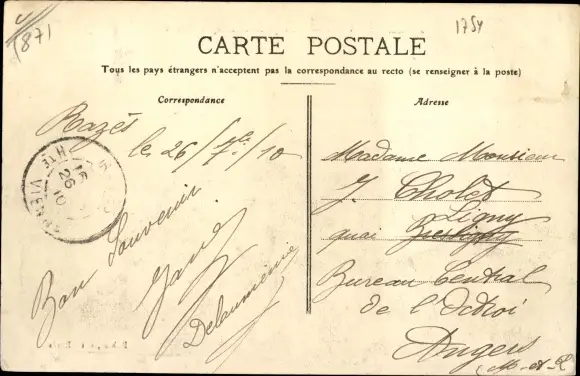 (871
1754
CARTE POSTALE
Tous les pays étrangers n'acceptent pas la correspondance au recto (se renseigner à la poste)
Correspondance
Razès
le 26/7bre/10
Bon Souvenir
Adresse
Madame Monsieur
J. Cholet
Ligny
quai
Bureau Central
de l'Octroi
Angers
(M-et-L